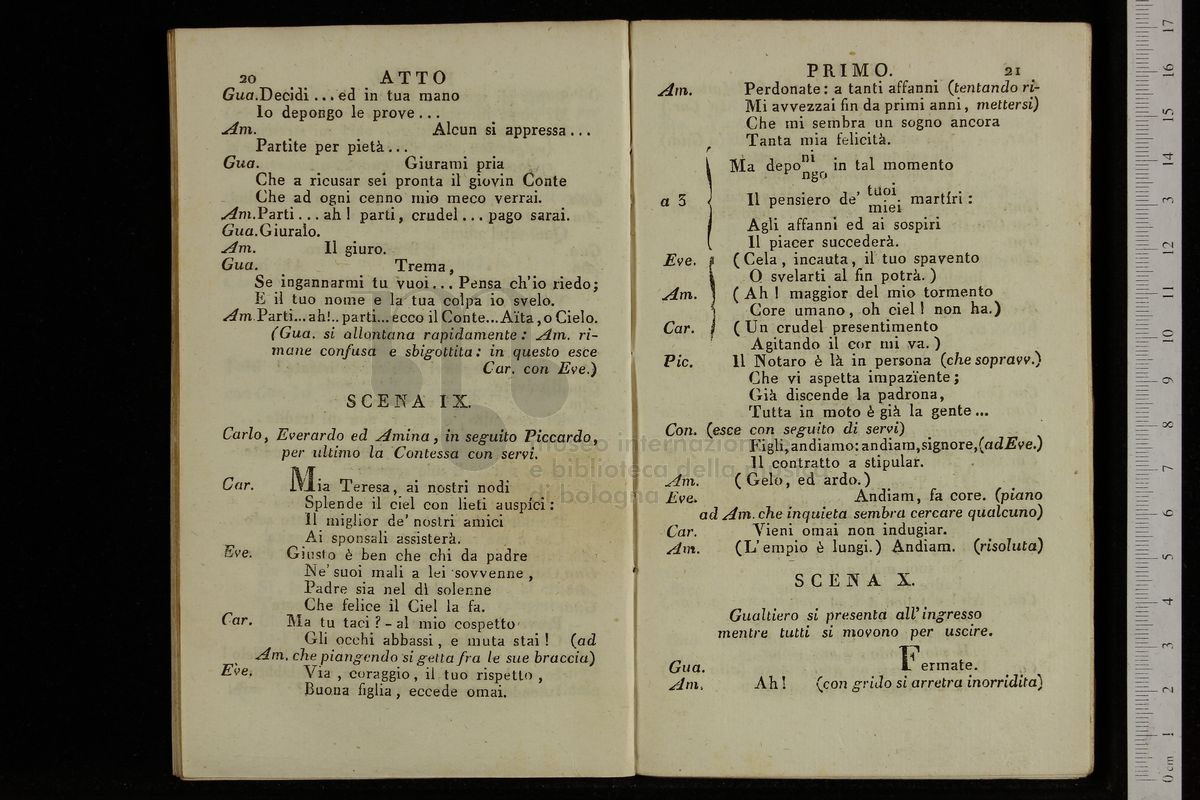 20 ATTO
Gua. Decidi ... ed in tua mano
Io depongo le prove ...
Am. Alcun si appressa ...
Partite per pietà ...
Gua. Giurami pria
Che a ricusar sei pronta il giovin Conte
Che ad ogni cenno mio meco verrai.
Am. Parti ... ah! parti, crudel ... pago sarai.
Gua. Giuralo.
Am. Il giuro.
Gua. Trema,
Se ingannarmi tu vuoi ... Pensa ch'io riedo;
E il tuo nome e la tua colpa io svelo.
Am. Parti... ah!.. parti... ecco il Conte... Aïta, o Cielo.
(Gua. si allontana rapidamente: Am. ri-
mane confusa e sbigottita: in questo esce
Car. con Eve.)
SCENA IX.
Carlo, Everardo ed Amina, in seguito Piccardo,
per ultimo la Contessa con servi.
Car. Mia Teresa, ai nostri nodi
Splende il ciel con lieti auspíci:
Il miglior de' nostri amici
Ai sponsali assisterà.
Eve. Giusto è ben che chi da padre
Ne' suoi mali a lei sovvenne,
Padre sia nel dì solenne
Che felice il Ciel la fa.
Car. Ma tu taci? - al mio cospetto
Gli occhi abbassi, e muta stai! (ad
Am. che piangendo si getta fra le sue braccia)
Eve. Via, coraggio, il tuo rispetto,
Buona figlia, eccede omai.
PRIMO. 21
Am. Perdonate: a tanti affanni (tentando ri-
Mi avvezzai fin da primi anni, mettersi)
Che mi sembra un sogno ancora
Tanta mia felicità.
Ma depo ni ngo in tal momento
a 3 Il pensiero de' tuoi miei martíri:
Agli affanni ed ai sospiri
Il piacer succederà.
Eve. (Cela, incauta, il tuo spavento
O svelarti al fin potrà.)
Am. (Ah! maggior del mio tormento
Core umano, oh ciel! non ha.)
Car. (Un crudel presentimento
Agitando il cor mi va.)
Pic. Il Notaro è là in persona (che sopravv.)
Che vi aspetta impazïente;
Già discende la padrona,
Tutta in moto è già la gente...
Con. (esce con seguito di servi)
Figli, andiamo: andiam, signore, (ad Eve.)
Il contratto a stipular.
Am. (Gelo, ed ardo.)
Eve. Andiam, fa core. (piano
ad Am. che inquieta sembra cercare qualcuno)
Car. Vieni omai non indugiar.
Am. (L'empio è lungi.) Andiam. (risoluta)
SCENA X.
Gualtiero si presenta all'ingresso
mentre tutti si movono per uscire.
Gua. Fermate.
Am. Ah! (con grido si arretra inorridita)
museo internazionale
e biblioteca della musica
di bologna
0 cm 1 2 3 4 5 6 7 8 9 10 11 12 13 14 15 16 17